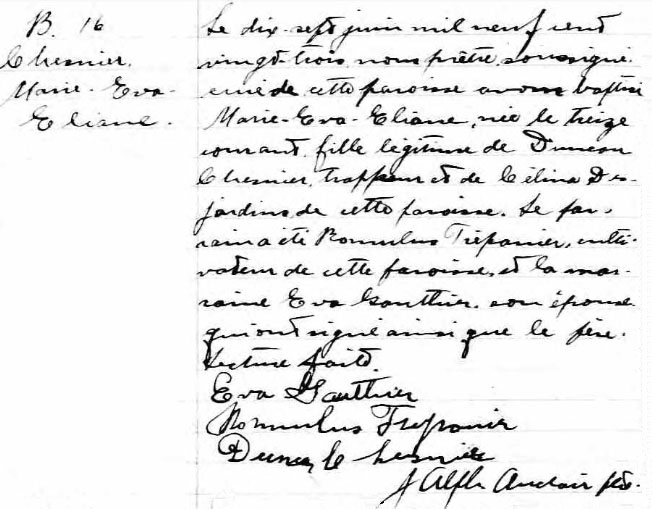 B. 16
Chesnier,
Marie-Eva-
Eliane.
Le dix-sept juin mil neuf cent
vingt-trois, nous prêtre soussigné
curé de cette paroisse avons baptisé
Marie-Eva-Eliane, née le treize
courant, fille légitime de Duncan
Chesnier, trappeur et de Célina Des-
jardins de cette paroisse. Le par-
rain a été Romulus Trépanier, culti-
vateur de cette paroisse, et la mar-
raine Eva Gauthier, son épouse
qui ont signé ainsi que le père.
Lecture faite.
Eva Gauthier
Romulus Trepanier
Duncan Chesnier
J Alph Auclair ptre.